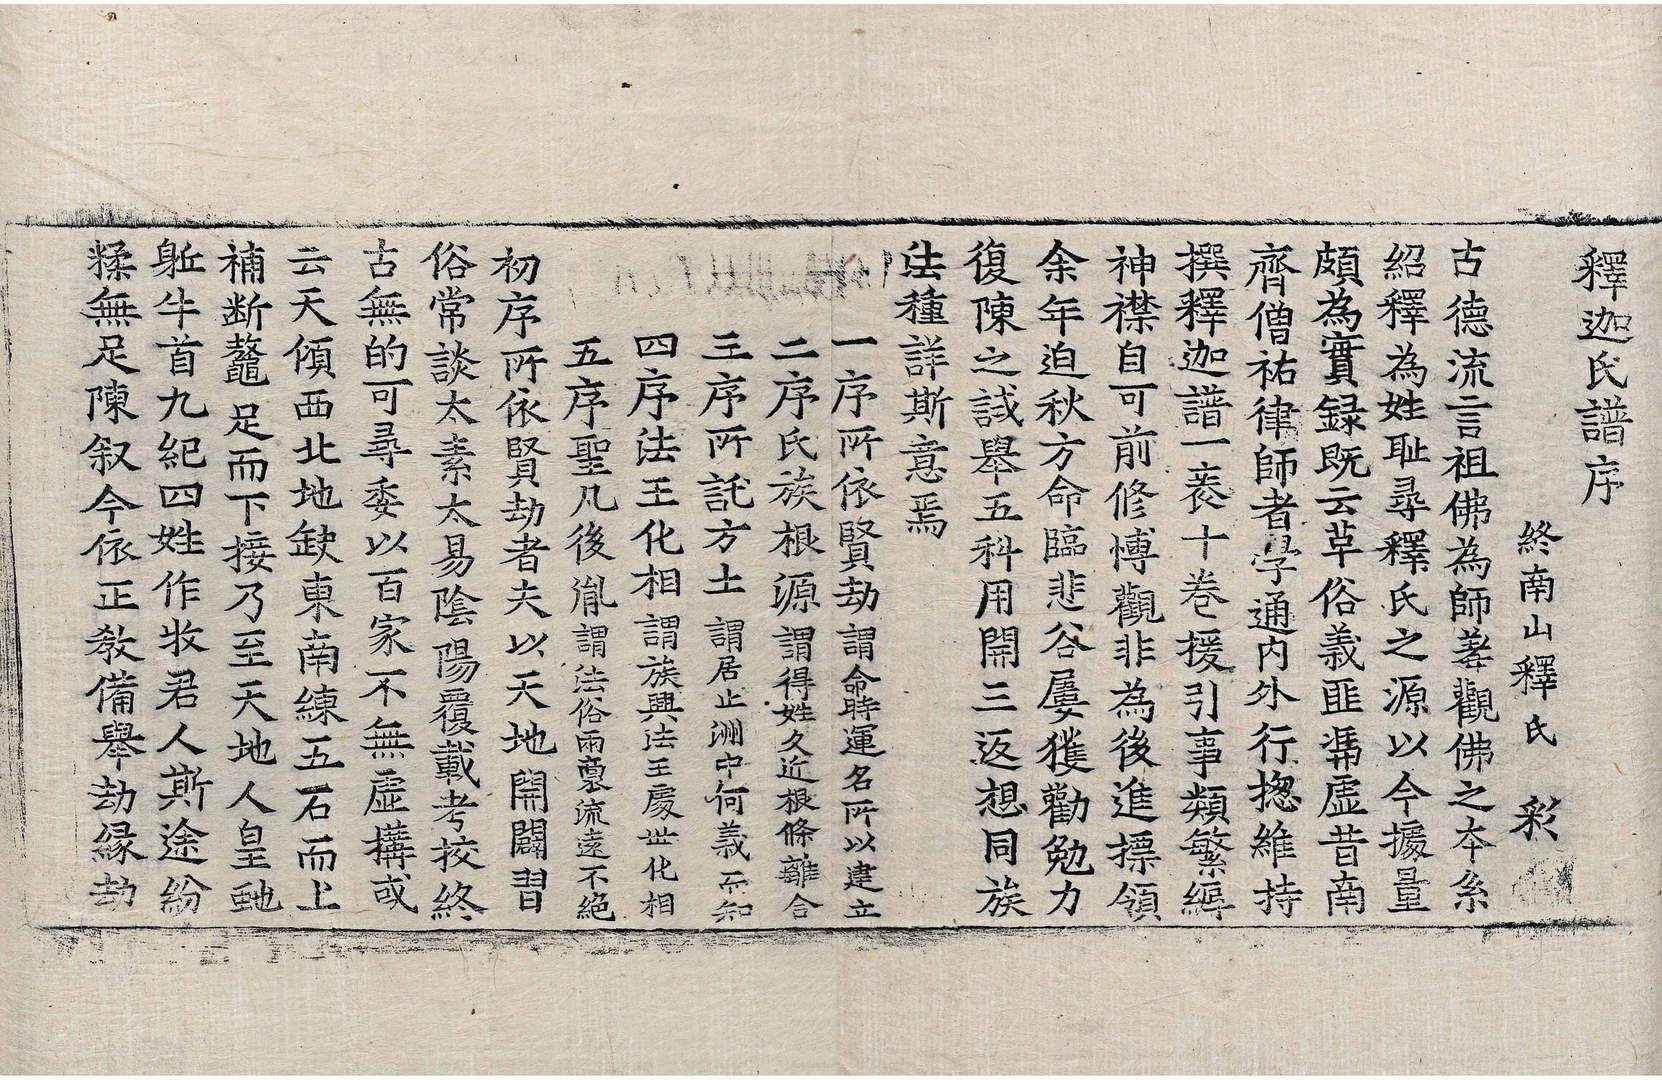 釋迦氏譜序
終南山釋氏　彩
古德流言祖佛為師羞觀佛之本系
紹釋為姓耻尋釋氏之源以今據量
頗為實録既云草俗義匪溤虛昔南
齊僧祐律師者學通内外行揔維持
撰釋迦譜一袠十卷援引事類繁縟
神襟自可前修博觀非為後進摽領
余年迫秋方命臨悲谷屢獲勸勉力
復陳之誠舉五科用開三返想同族
法種詳斯意焉
一序所依賢劫謂命時運名所以建立
二序氏族根源謂得姓久近根條離合
三序所託方土謂居止洲中何義而知
四序法王化相謂族興法王處世化相
五序聖凡後胤謂法俗兩裹流遠不絶
初序所依賢劫者夫以天地開闢習
俗常談太素太易陰陽覆載考挍終
古無的可尋委以百家不無虛搆或
云天傾西北地缺東南練五石而上
補断鼇足而下接乃至天地人皇虵
躯牛首九紀四姓作收君人斯途紛
糅無足陳叙今依正教備舉劫縁劫